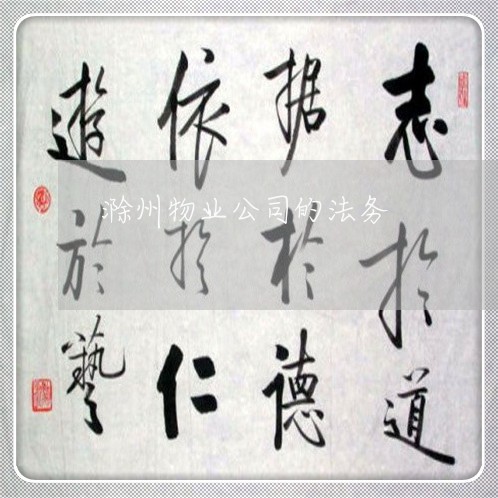 志於道
据於德
依於仁
遊於藝
滁州物业公司的法务